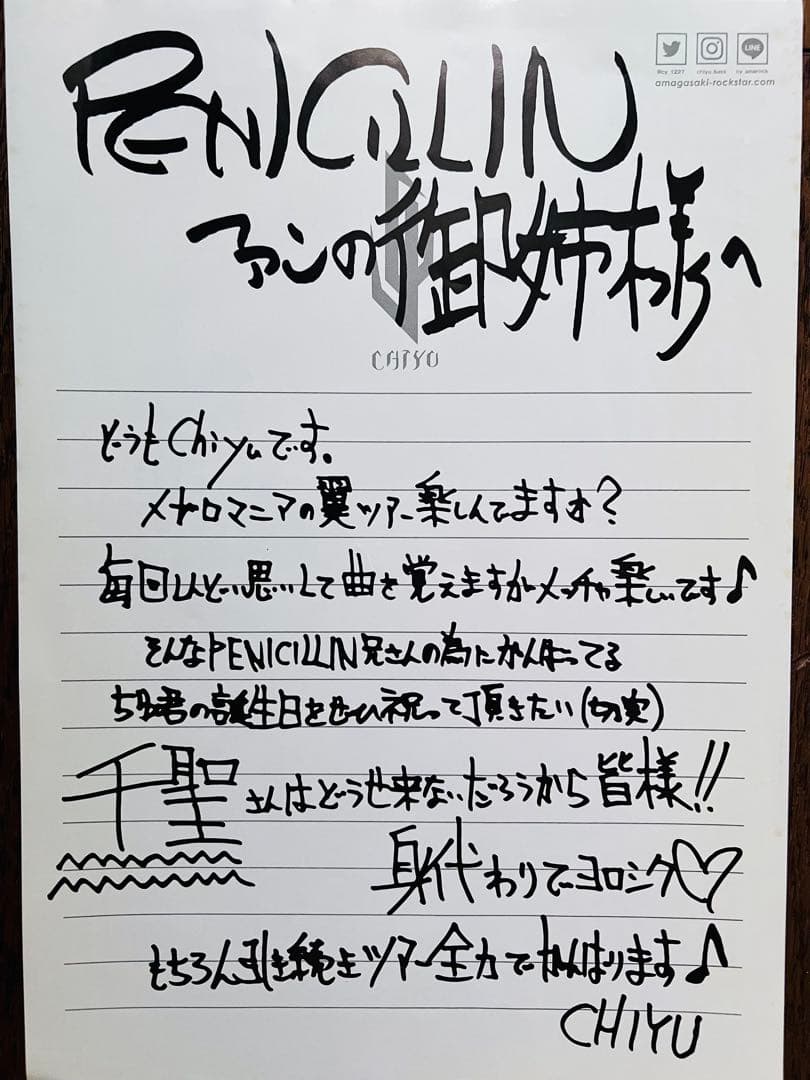 PENICILLIN
ファンの御姉様へ
LINE
amagasaki-rockstar.com
CHIYU
どうもChiyuです。
メガロマニアの翼ツアー楽しんでますか?
毎回ひどい思いして曲を覚えますがメッチャ楽しいです♪
そんなPENICILLIN兄さんの為にがんばってる
ちゆ君の誕生日をぜひ祝って頂きたい(切実)
千聖さんはどうせ来ないだろうから皆様!!
身代わりでヨロシク♡
もちろん引き続きツアー全力でがんばります♪
CHIYU